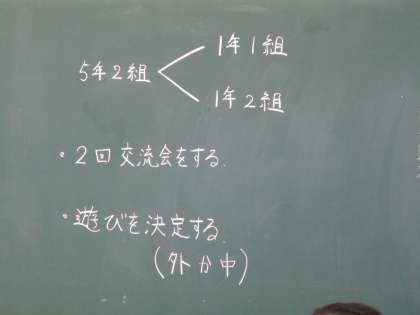 1年1組
5年2組
1年2組
・2回交流会をする.
・遊びを決定する.
(外か中)